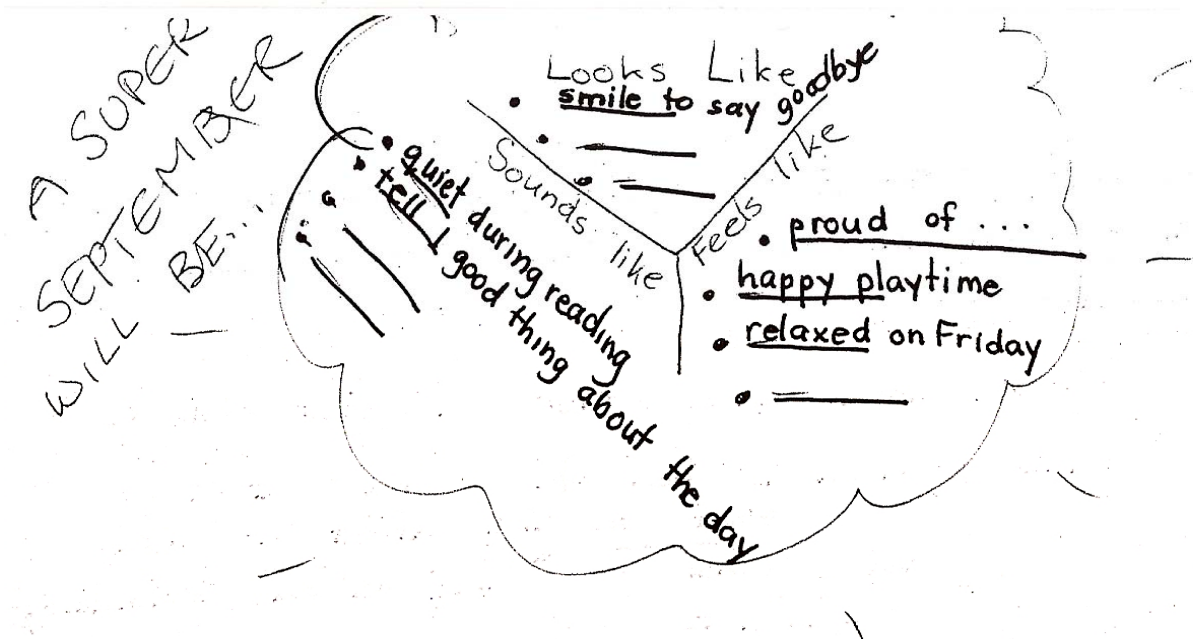 A SUPER
SEPTEMBER
WILL BE...
Looks Like
smile to say goodbye
Sounds like
quiet during reading
tell 1 good thing about the day
Feels like
proud of ...
happy playtime
relaxed on Friday